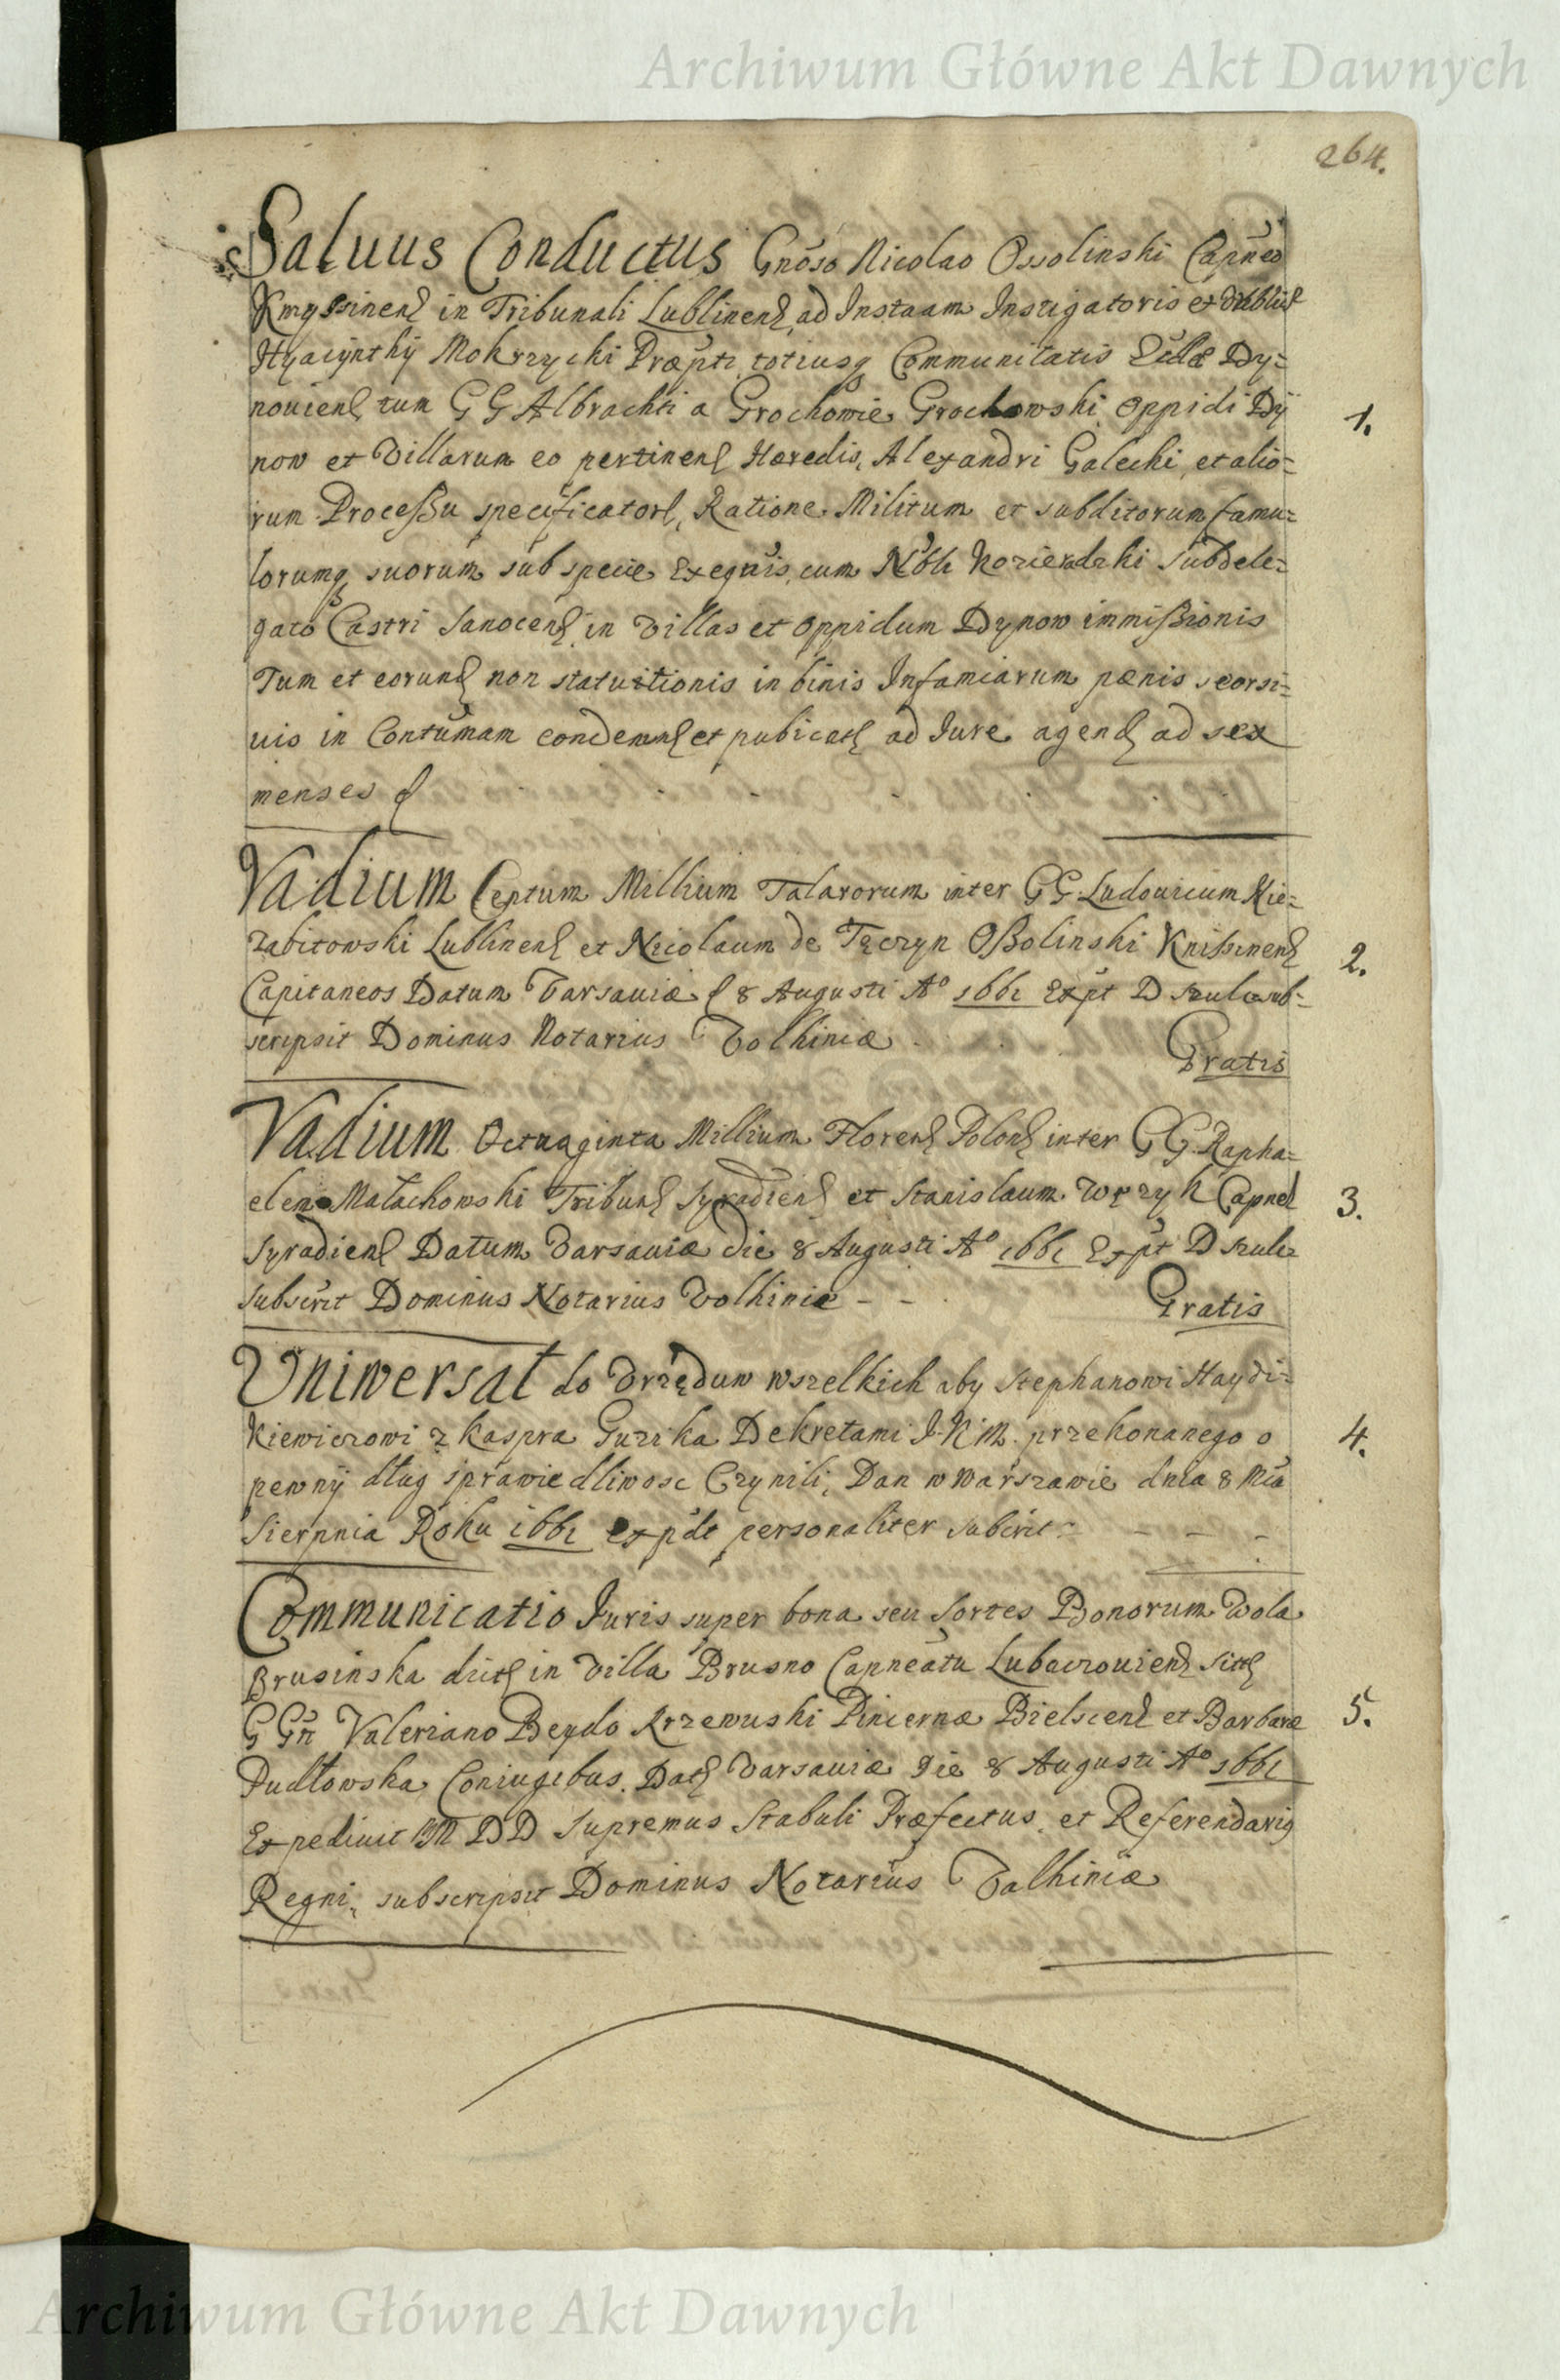 Archiwum Główne Akt Dawnych
264.
Saluus Conductus Gnoso Nicolao Ossolinski Capneo
Knyssinens in Tribunali Lublinens ad Instaam Instigatoris et
Hyacijnthij Mokrzycki Præpti totiusq Communitatis Dy=
nouiens tum G G Albrachti a Grochowie Grochowski oppidi Dij
now et Villarum eo pertinens Hæredis, Alexandri Galecki, et alio=
rum Processu specificator, Ratione Militum et subditorum famu=
lorumq suorum sub specie Exeqnis, cum Nobli Subdele=
gato Castri Sanocens in Villas et oppidum Dynow immissionis
Tum et eorund non statuitionis in binis Infamiarum pænis seorsi=
uis in Contumam condemn et pubicat ad Jure agend ad sex
menses
1.
Vadium Centum Millium Talarorum inter G G Ludouicum Nie=
zabitowski Lublinens et Nicolaum de Tęczyn Ossolinski Knissinens
Capitaneos Datum Varsauiæ d 8 Augusti Aº 1661 Expt D Szulc sub=
scripsit Dominus Notarius Volhiniæ
Gratis
2.
Vadium Octuaginta Millium Floren Polon inter G G Rapha=
elem Małachowski Tribun Syradiens et Stanislaum Wężyk Capne
Syradiens Datum Varsauiæ die 8 Augusti Aº 1661 Expt D Szulc
Subscrit Dominus Notarius Volhiniæ - -
Gratis
3.
Uniwersał do Vrzęduw wszelkich aby Stephanowi Haydi=
kiewiczowi z Kaspra Guzika Dekretami J.K.M. przekonanego o
pewnÿ dług sprawiedliwosc Czynili, Dan w Warszawie dnia 8 Mca
Sierpnia Roku 1661 expdt personaliter subcrit - - -
4.
Communicatio Juris super bona seu Sortes Bonorum Wola
Brusinska dict in Villa Brusno Capneatu Lubaczouiens sitt
G Gn Valeriano Beydo Rzewuski Pincernæ Bielscens et Barbaræ
Pudłowska Coniugibus. Dat Varsauiæ Die 8 Augusti Aº 1661
Expediuit M D D Supremus Stabuli Præfectus et Referendarig
Regni, subscripsit Dominus Notarius Volhiniæ
5.
Archiwum Główne Akt Dawnych